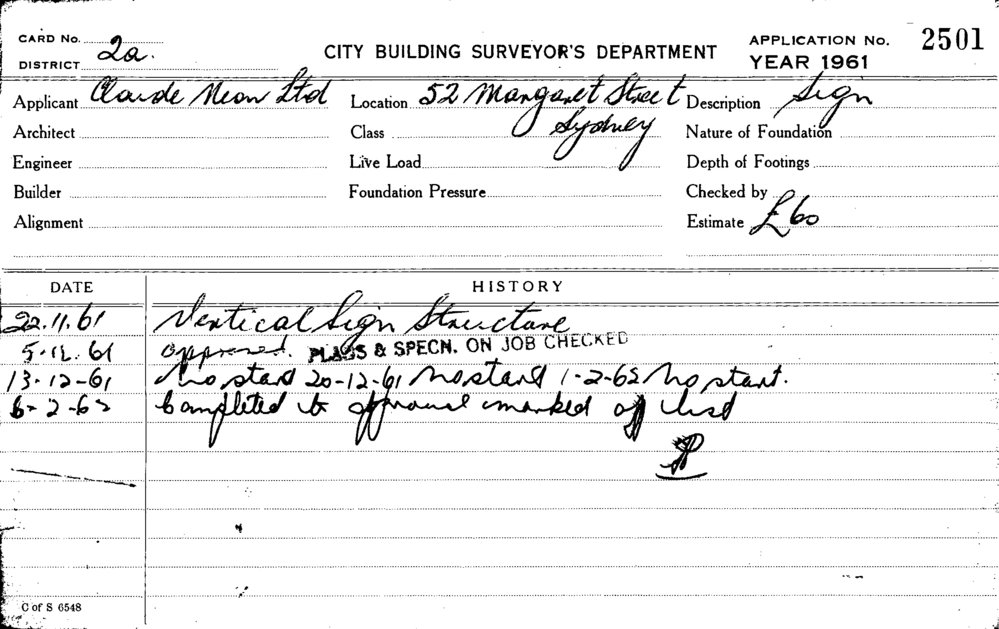 CARD No. 2a.
DISTRICT
CITY BUILDING SURVEYOR'S DEPARTMENT
APPLICATION No. 2501
YEAR 1961
Applicant Claude Neon Ltd Location 52 Margaret Street Description Sign
Architect Class Sydney Nature of Foundation
Engineer Live Load Depth of Footings
Builder Foundation Pressure Checked by
Alignment Estimate £60
DATE HISTORY
22.11.61 Vertical Sign Structure
5.12.61 approved. PLANS & SPECN. ON JOB CHECKED
13-12-61 No start 20-12-61 No start 1-2-62 No start.
6-2-62 Completed to approval marked off list
C of S 6548